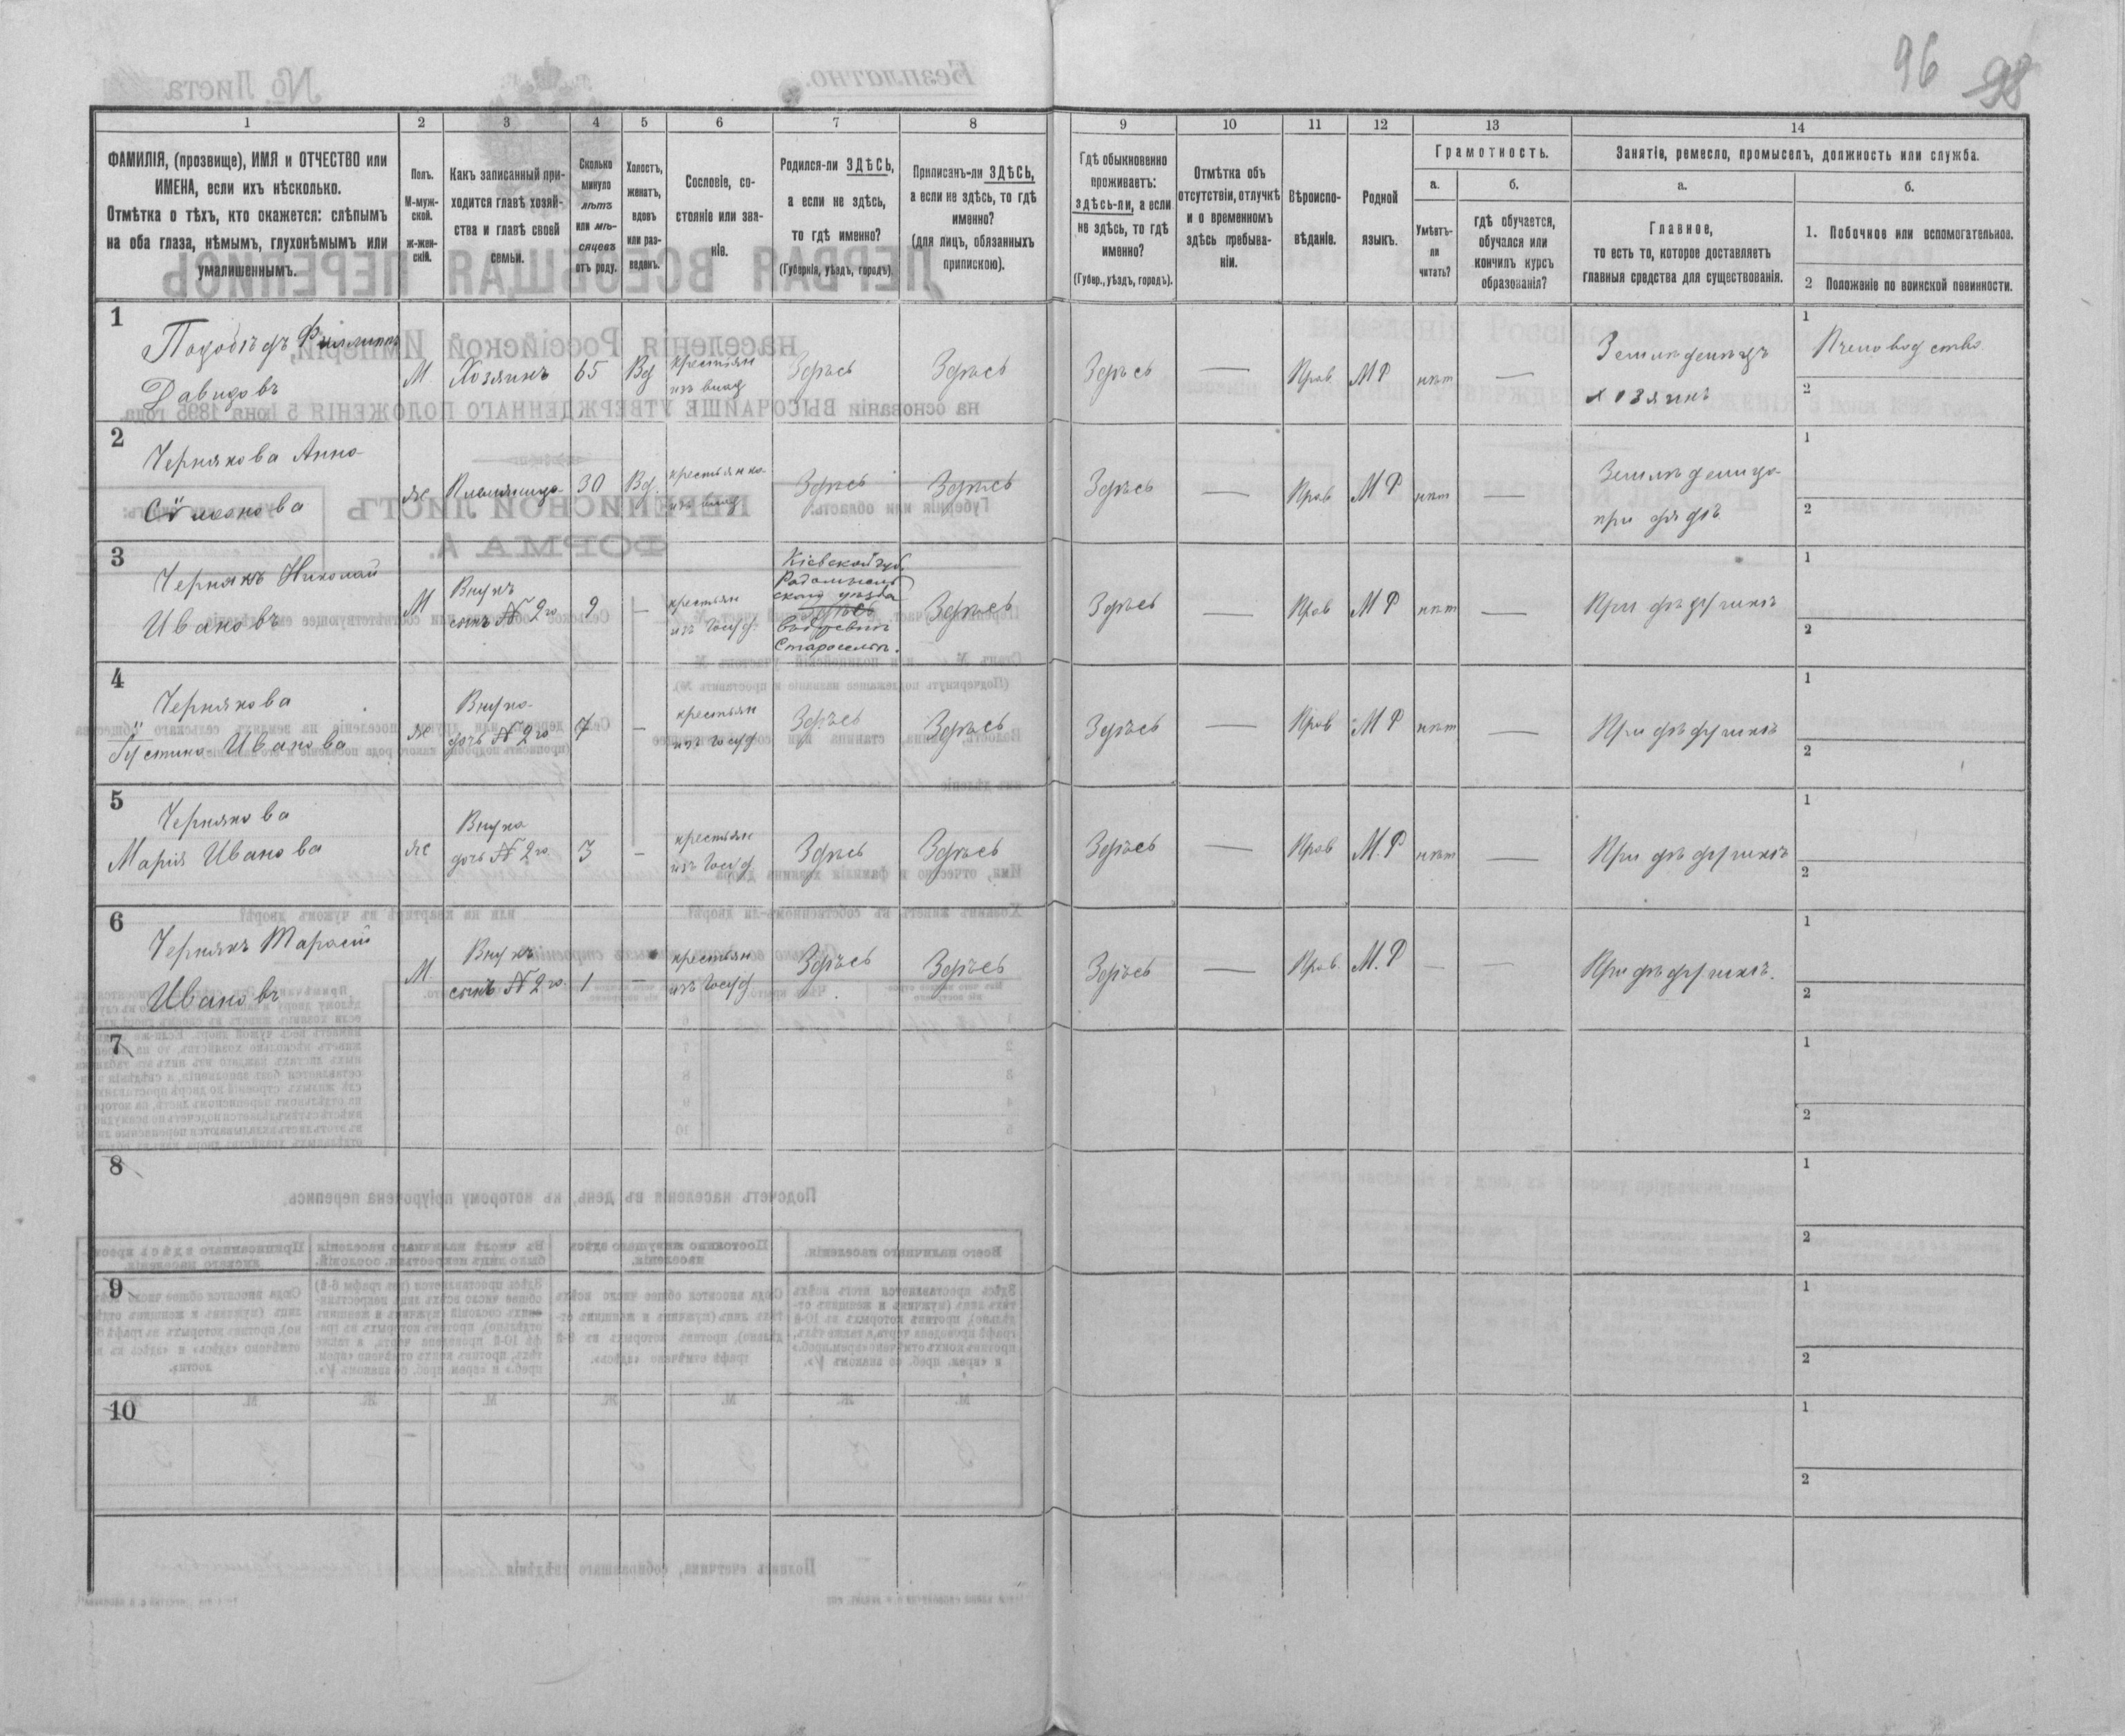 96 98
1 2 3 4 5 6 7 8 9 10 11 12 13 14
ФАМИЛІЯ, (прозвище), ИМЯ и ОТЧЕСТВО или
ИМЕНА, если ихъ нѣсколько.
Отмѣтка о тѣхъ, кто окажется: слѣпымъ
на оба глаза, нѣмымъ, глухонѣмымъ или
умалишеннымъ.
Полъ.
М-муж-
ской.
ж-жен-
скій.
Какъ записанный при-
ходится главѣ хозяй-
ства и главѣ своей
семьи.
Сколько
минуло
лѣтъ
или мѣ-
сяцевъ
отъ роду.
Холостъ,
женатъ,
вдовъ
или раз-
веденъ.
Сословіе, со-
стояніе или зва-
ніе.
Родился-ли ЗДѢСЬ,
а если не здѣсь,
то гдѣ именно?
(Губернія, уѣздъ, городъ).
Приписанъ-ли ЗДѢСЬ,
а если не здѣсь, то гдѣ
именно?
(для лицъ, обязанныхъ
припискою).
Гдѣ обыкновенно
проживаетъ:
здѣсь-ли, а если
не здѣсь, то гдѣ
именно?
(Губер., уѣздъ, городъ).
Отмѣтка объ
отсутствіи, отлучкѣ
и о временномъ
здѣсь пребыва-
ніи.
Вѣроиспо-
вѣданіе.
Родной
языкъ.
Грамотность.
а.
Умѣетъ-
ли
читать?
б.
гдѣ обучается,
обучался или
кончилъ курсъ
образованія?
Занятіе, ремесло, промыселъ, должность или служба.
а.
Главное,
то есть то, которое доставляетъ
главныя средства для существованія.
б.
1. Побочное или вспомогательное.
2 Положеніе по воинской повинности.
1
Филиппъ
Давидовъ
М Хозяинъ 65 Вд
крестьян
изъ влад
Здѣсь Здѣсь Здѣсь — Прав М Р нѣт —
Земледѣлецъ
хозяинъ
1 Пчеловодство
2
2
Чернякова Анна
М Р нѣт —
же Племяница 30 Вд.
крестьянка
изъ влад
Здѣсь Здѣсь Здѣсь — Прав
Земледѣлица
при дядѣ
1
2
3
Чернякъ Николай
Ивановъ
М
Внукъ
сынъ № 2го
9 —
крестьян
изъ госуд.
Кіевской губ.
Радомысль
скаго уѣзда
Здѣсь
въ деревнѣ
Староселье.
Здѣсь Здѣсь — Прав М Р нѣт —
При дѣдушкѣ
1
2
4
Чернякова
Іустина Иванова
же
Внука
дочь № 2го
7 —
крестьян
изъ госуд
Здѣсь Здѣсь Здѣсь — Прав М Р нѣт —
При дѣдушкѣ
1
2
5
Чернякова
Марія Иванова
же
Внука
дочь № 2го
3 —
крестьян
изъ госуд
Здѣсь Здѣсь Здѣсь — Прав М. Р нѣт —
При дѣдушкѣ
1
2
6
Чернякъ Тарасій
Ивановъ
М.
Внукъ
сынъ № 2го
1 —
крестьян
изъ госуд
Здѣсь Здѣсь Здѣсь — Прав. М. Р — —
При дѣдушкѣ.
1
2
7
1
2
8
1
2
9
1
2
10
1
2